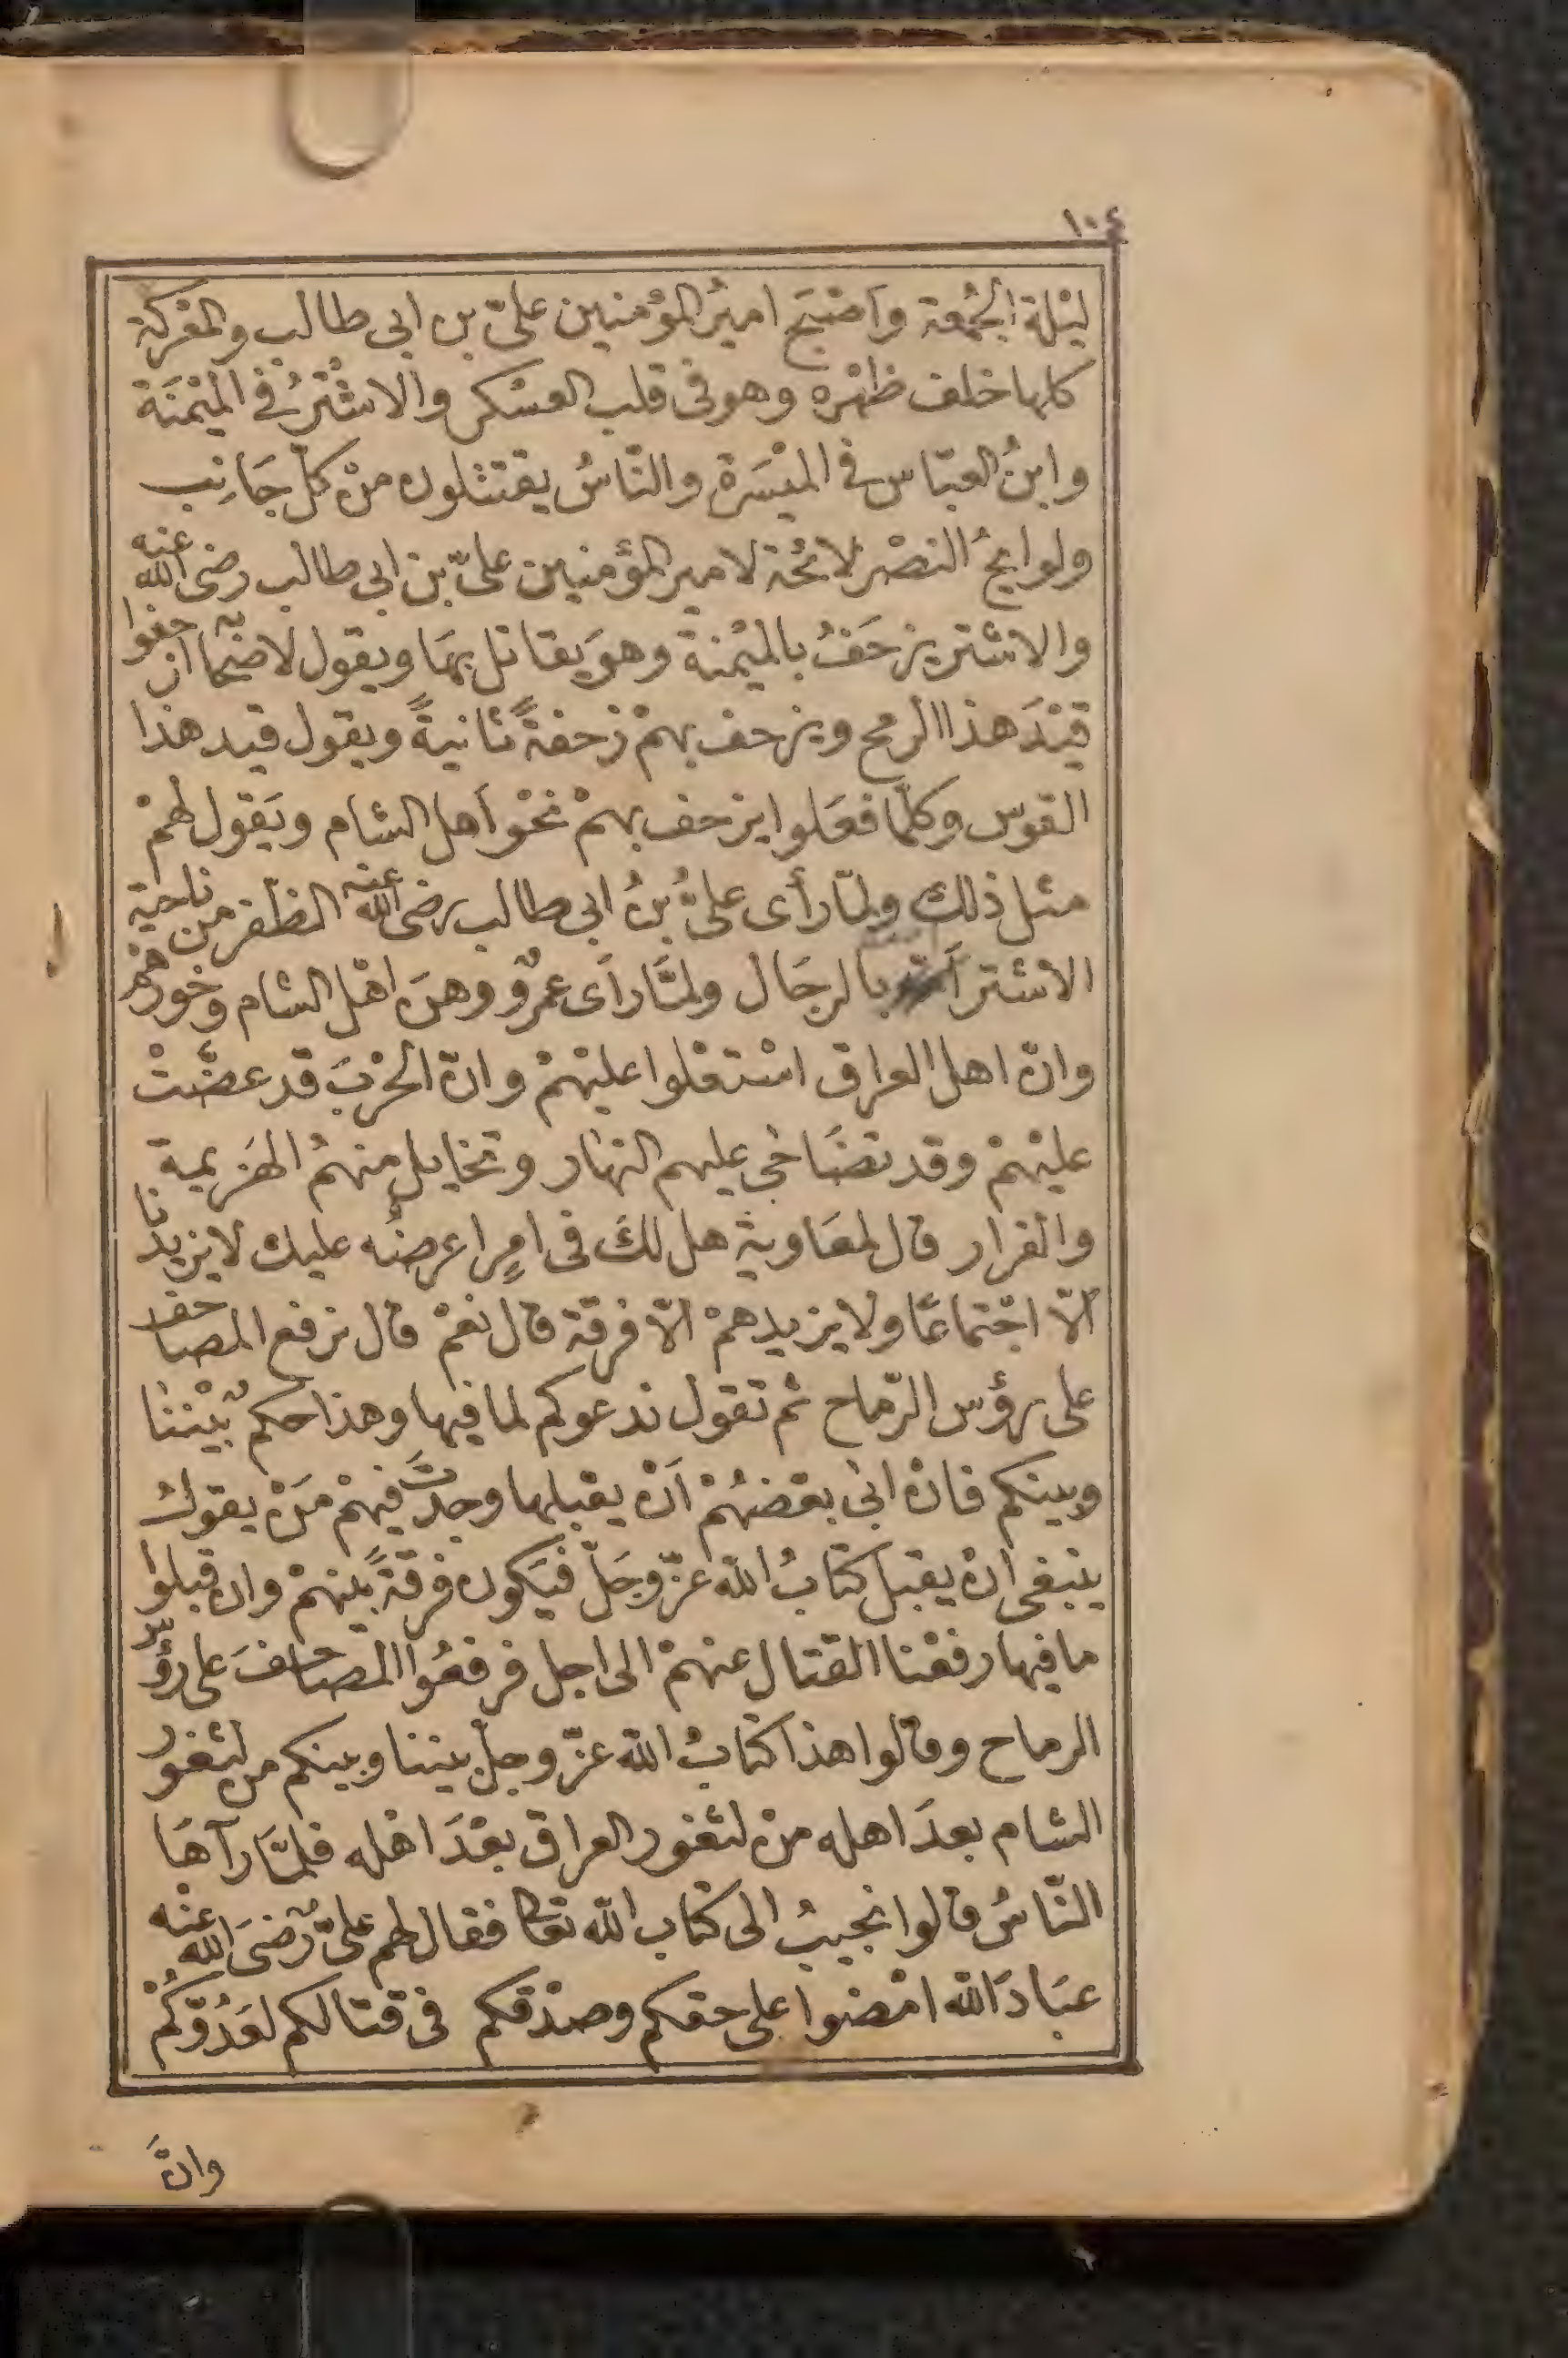 ١٠٤
ليْلة الجُمعة وأصْبَح اميرُ المؤْمنين علىّ بن ابى طالب والمعْركة
كلها خلف ظهْره وهو فى قلب العسْكر والاشْترُ فى الميْمنَة
وابنُ العبّاس فى الميْسَرة والنّاسُ يقتتلون منْ كلّ جَانِب
ولوايحُ النصْر لائحة لامير المؤمنين علىّ بن ابى طالب رضى الله عنه
والاشتر يزحَفُ بالميْمنة وهوَ يقاتل بهَا ويقول لاصحابه ازحفوا
قيْدَ هذا الرمح ويزحف بهمْ زحفةً ثانيةً ويقول قيد هذا
القوس وكلّما فعَلوا يزحف بهمْ نحْو أهل الشام ويَقول لهمْ
مثل ذلك ولمّا رأى علىُّ بنُ ابى طالب رضى الله عنه الظفر من ناحية
الاشتر أمدّه بالرجَال ولمَّا رأى عمرٌو وهنَ اهْل الشام وخورهم
وانّ اهل العراق اسْتعْلوا عليْهمْ وانّ الحرْبَ قد عضّتْ
عليْهمْ وقد تضَاحٰى عليهم النهار وتخايل منهمُ الهَزيمة
والفرار قال لمعَاوية هل لكَ فى امرٍ اعرضُه عليك لا يزيدنا
الّا اجْتماعًا ولا يزيدهمْ الّا فرقة قال نعمْ قال نرفع المصاحف
على رؤس الرّماح ثم تقول ندعوكم لما فيها وهذا حكمٌ بيْننا
وبينكم فانْ ابى بعْضهُمْ أنْ يقبلها وجدتَ فيهمْ مَنْ يقولُ
ينبغى انْ يقبل كتابُ الله عزّ وجَلّ فيَكون فرقةً بينهمْ وان قبلوْا
ما فيها رفعْنا القتال عنهمْ الى اجل فرفعُوا المصاحفَ على رؤس
الرماح وقالوا هذا كتابُ الله عزّ وجلّ بيننا وبينكم من لثغور
الشام بعدَ اهله منْ لثغور العراق بعْدَ اهْله فلمَّا رآهَا
النّاسُ قالوا نجيبُ الى كتاب الله تعالى فقال لهم علىٌّ رضىَ الله عنْه
عبَادَ الله امْضوا على حقكم وصدْقكم فى قتالكم لعَدُوّكُمْ
وانَّ